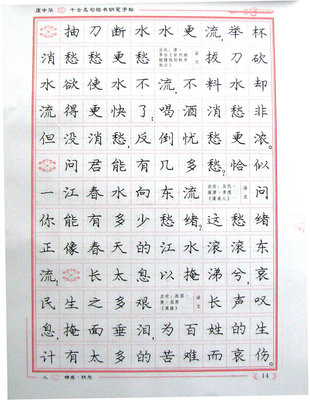 庞中华 千古名句楷书钢笔字帖
抽刀断水水更流,举杯
消愁愁更愁。出处:唐·李白《宣州谢朓楼饯别校书叔云》 译文 拔刀砍
水欲使水不流,不料水却
流得更快了;喝酒消愁非
但没消愁,反倒忧愁更浓。
问君能有几多愁?恰似
一江春水向东流。出处:五代·南唐·李煜《虞美人》 译文 问
你能有多少愁绪?这愁绪
正像春天的江水滚滚东
流! 长太息以掩涕兮,哀
民生之多艰。出处:战国·楚·屈原《离骚》 译文 长声叹
息,掩面垂泪,为百姓的生
计有太多的苦难而哀伤。
人 情感·忧愁 14